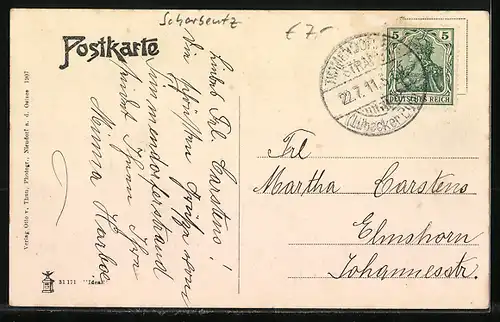 Scharbeutz
€ 7.-
Postkarte
Liebes Frl. Carstens!
Die schönsten Grüße vom
Timmendorferstrand
sendet Ihnen Ihre
Minna Harboe
TIMMENDORFER
STRAND
22.7.11
(Lübecker
5 5
DEUTSCHES REICH
Frl
Martha Carstens
Elmshorn
Johannesstr.
Verlag Otto v. Thun, Photogr., Niendorf a. d. Ostsee 1907
31171 "Ideal"